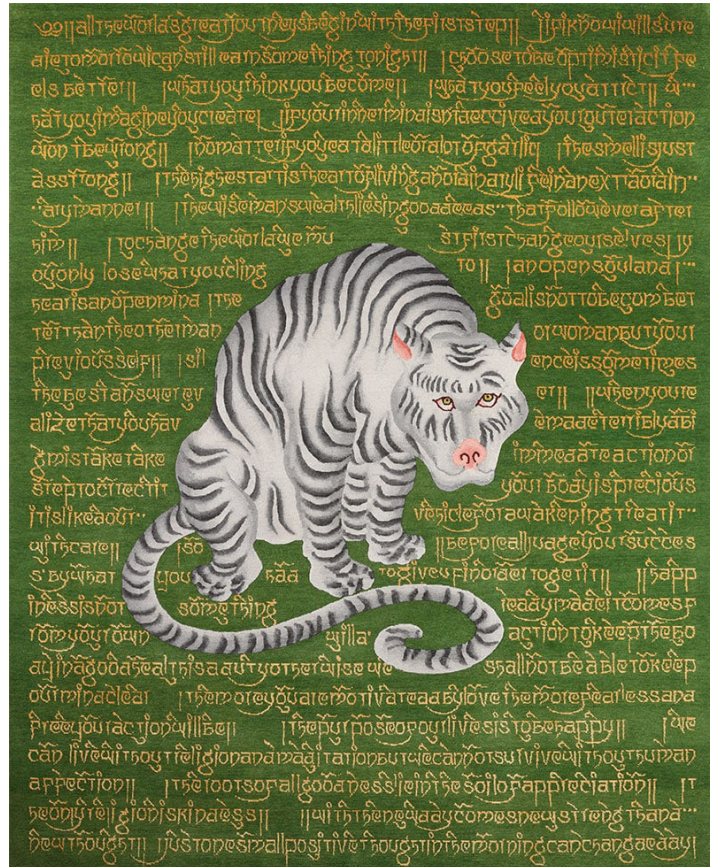 ༄༅||allthewordlsgreatjourneysbeginwiththefirststep|| |ifiknowiwillsure
dietomorrowicanstilllearnsomethingtonight|| |choosetobeoptimisticitfe
elsbetter|| |whatyouthinkyoubecome|| |whatyoufeelyouattract|| w
hatyouimagineyoucreate|
wrong|| |nomatterifyoueatalittleoralotofgarlic |thesmellisjust
asstrong|| |thehighestartistheartoflivinganordinarylifeinanextraordin
arymanner|| |thewisemanswealthliesingooddeeds thatfolloweverafter
him|| |tochangetheworldwemu stfirstchangeourselves||y
ouonly losewhatyoucling to|| |anopensoulandl
heartisanopenmind |the goalisnottobecombet
terthantheotherman orwomanbutyour
previousself|| |sil enceissometimes
thebestanswerev er|| ||whenyoure
alizethatyouhav emadeterriblyabi
gmistaketake immediateactionor
steptocrrectit yourbodyisprecious
itislikeaour vehicleforawakeningtreatit
withcare|| |so ||beforealljudgeyoursucces
s'bywhat youhad togiveupinordertogetit|| ||happ
inessisnot something readymadeitcomesf
romyourown willa' actiontokeepthebo
dyinagoodhealthisadutyotherwisewe shallnotbeabletokeep
ourmindclear |themoreyouaremotivatedbylovethemorefearlessand
freeyouractionwillbe|| |thepurposeofourlivesistobehappy|| |we
can livewithoutreligionandmaditationbutwecannotsurvivewithouthuman
affection|| |therootsofallgoodnesslieinthesoilofappreciation|| |t
heonlyreligioniskindness|| ||withthenewdaycomesnewstrengthand
newthought|| |justonesmallpositivethoughtinthemorningcanchangeaday|